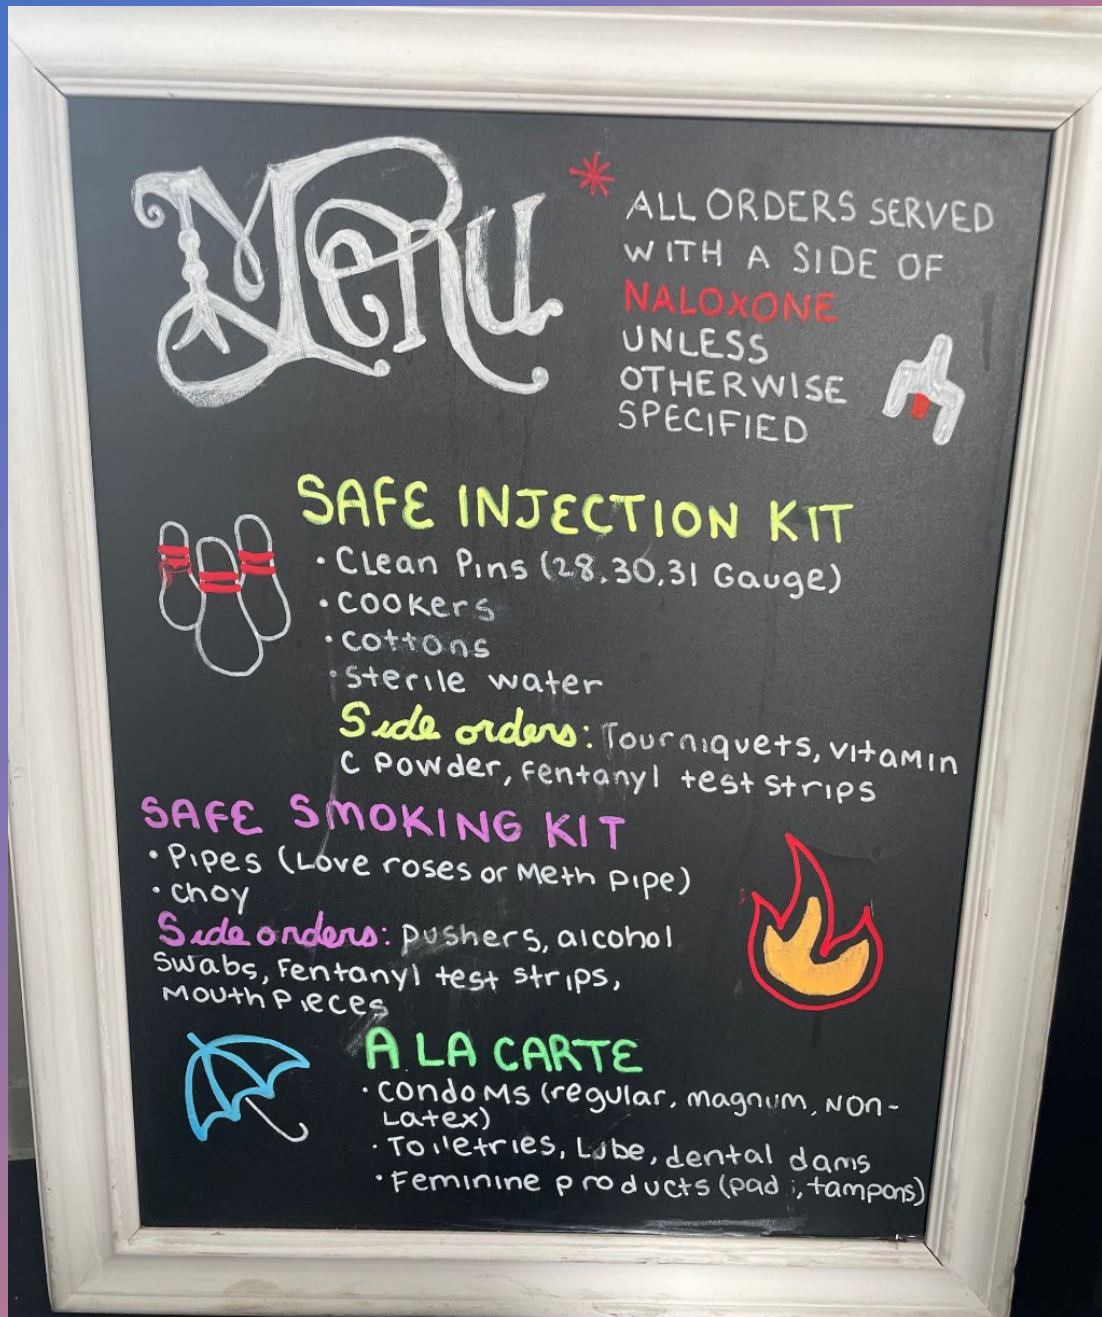 Menu
* ALL ORDERS SERVED
WITH A SIDE OF
NALOXONE
UNLESS
OTHERWISE
SPECIFIED
SAFE INJECTION KIT
• Clean Pins (28,30,31 Gauge)
• Cookers
• Cottons
• Sterile water
Side orders: Tourniquets, vitamin
C Powder, Fentanyl test strips
SAFE SMOKING KIT
• Pipes (Love roses or Meth Pipe)
• Choy
Side orders: pushers, alcohol
swabs, Fentanyl test strips,
Mouth Pieces
A LA CARTE
• Condoms (regular, magnum, Non-
Latex)
• Toiletries, Lube, dental dams
• Feminine products (pads, tampons)